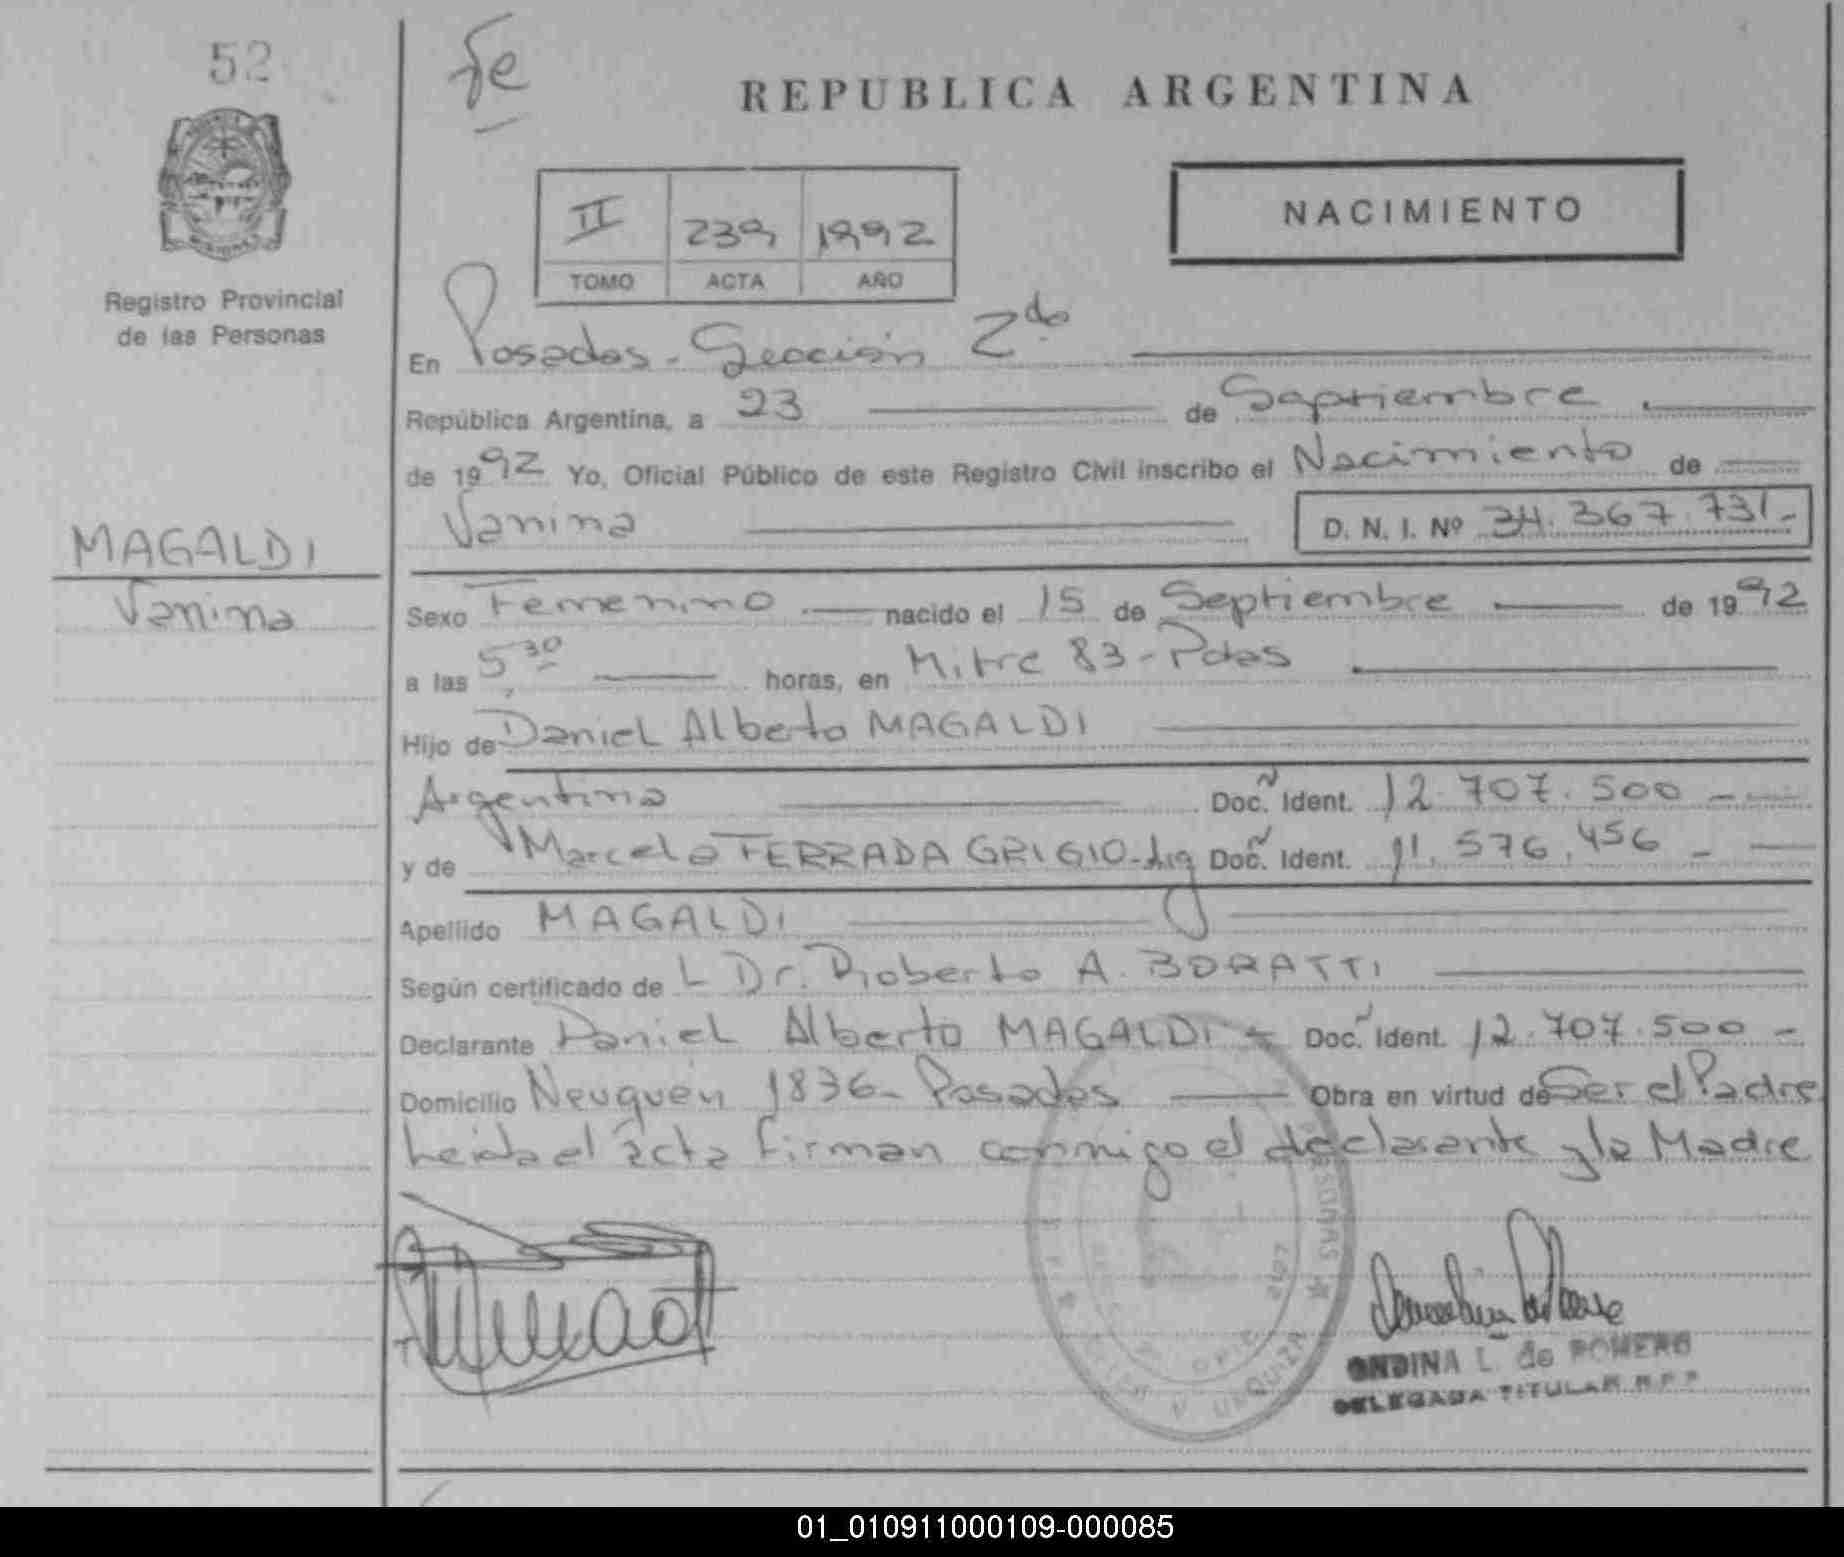 52
fe
REPUBLICA ARGENTINA
II 239 1992
TOMO ACTA AÑO
NACIMIENTO
Registro Provincial
de las Personas
En Posadas - Sección 2da
República Argentina, a 23 de Septiembre
de 1992 Yo, Oficial Público de este Registro Civil inscribo el Nacimiento de
Vanina D. N. I. Nº 34.367.731-
MAGALDI
Vanina
Sexo Femenino nacido el 15 de Septiembre de 1992
a las 5,30 horas, en Mitre 83 - Pdas
Hijo de Daniel Alberto MAGALDI
Argentino Doc. Ident. 12.707.500 -
y de Marcela FERRADA GRIGIO - Arg Doc. Ident. 11.576.456 -
Apellido MAGALDI
Según certificado de L Dr. Roberto A. BORATTI
Declarante Daniel Alberto MAGALDI - Doc. Ident. 12.707.500 -
Domicilio Neuquén 1836 - Posadas Obra en virtud de Ser el Padre
Leida el acta firman conmigo el declarante y la Madre
ONDINA L. de ROMERO
DELEGADA TITULAR R.P.P
01_010911000109-000085